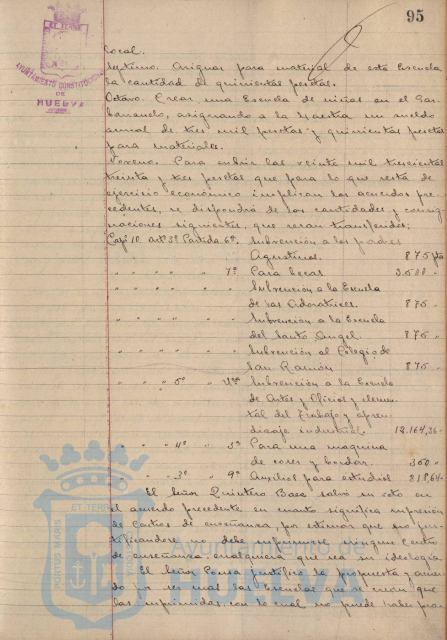 95
AYUNTAMIENTO CONSTITUCIONAL
DE
HUELVA
local.
Septimo. Asignar para material de esta Escuela
la cantidad de quinientas pesetas.
Octavo. Crear una Escuela de niñas en el
asignando a la Maestra un sueldo
anual de tres mil pesetas y quinientas pesetas
para materiales.
Noveno. Para cubrir las veinte mil trescientas
treinta y tres pesetas que para lo que resta de
ejercicio económico implican los acuerdos pre-
cedentes, se dispondrá de las cantidades y consig-
naciones siguientes, que serán transferidas;
Capº 10 artº 3º Partida 6ª. Subvención a los padres
Agustinos. 875 pts
" " " " 7ª Para becas
" " " " " Subvención a la Escuela
de las Adoratrices. 875 "
" " " " " Subvención a la Escuela
del Santo Angel. 875 "
" " " " " Subvención al Colegio de
San Ramón 875 "
" " " 5º " Subvención a la Escuela
de Artes y Oficios y elemen-
tal del Trabajo y apren-
dizaje industrial. 12.164,36
" " " 4º " 3ª Para una maquina
de coser y bordar. 300
" " " 3º " 9ª Auxilios para estudios
El Señor Quintero Baez salvó su voto en
el acuerdo precedente en cuanto significa supresión
de Centros de enseñanza, por estimar que no
debe suprimirse ningun Centro
de enseñanza cualquiera que sea su ideología.
El Señor Ponsa justificó la propuesta y
ser mas las Escuelas que se crean que
las suprimidas, con lo cual no puede haber
ET TERRAE
PORTUS MARIS
Ayuntamiento de
HUELVA